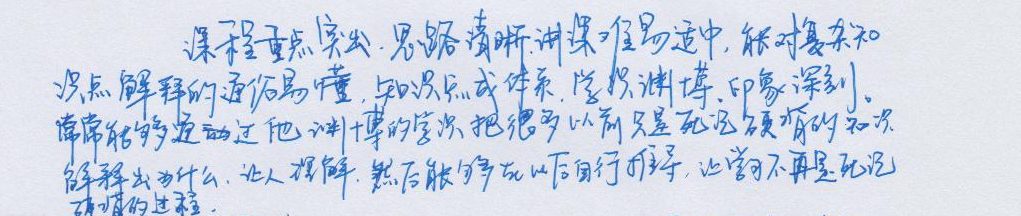 课程重点突出,思路清晰讲课难易适中,能对复杂知
识点解释的通俗易懂,知识点成体系,学识渊博、印象深刻。
常常能够通过他渊博的学识把很多以前只是死记硬背的知识
解释出为什么,让人理解,然后能够在以后自行推导,让学习不再是死记
硬背的过程.